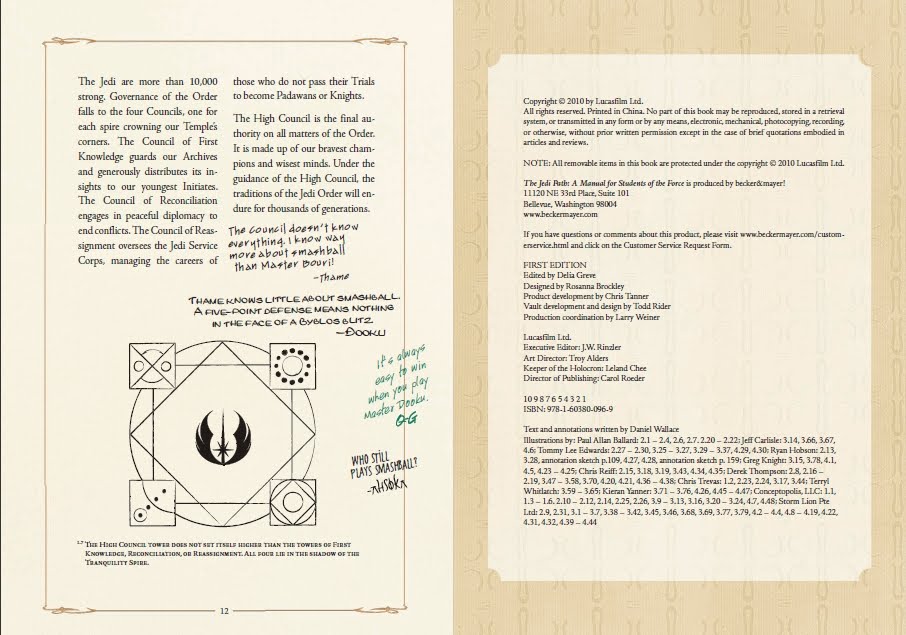 The Jedi are more than 10,000
strong. Governance of the Order
falls to the four Councils, one for
each spire crowning our Temple's
corners. The Council of First
Knowledge guards our Archives
and generously distributes its in-
sights to our youngest Initiates.
The Council of Reconciliation
engages in peaceful diplomacy to
end conflicts. The Council of Reas-
signment oversees the Jedi Service
Corps, managing the careers of
those who do not pass their Trials
to become Padawans or Knights.
The High Council is the final au-
thority on all matters of the Order.
It is made up of our bravest cham-
pions and wisest minds. Under the
guidance of the High Council, the
traditions of the Jedi Order will en-
dure for thousands of generations.
The Council doesn't know
everything. I know way
more about smashball
than Master Bouri!
-Thame
THAME KNOWS LITTLE ABOUT SMASHBALL.
A FIVE-POINT DEFENSE MEANS NOTHING
IN THE FACE OF A BYBLOS BLITZ.
—DOOKU
It's always
easy to win
when you play
Master Dooku.
Q-G
WHO STILL
PLAYS SMASHBALL?
-AHSOKA
1.7 THE HIGH COUNCIL TOWER DOES NOT SET ITSELF HIGHER THAN THE TOWERS OF FIRST
KNOWLEDGE, RECONCILIATION, OR REASSIGNMENT. ALL FOUR LIE IN THE SHADOW OF THE
TRANQUILITY SPIRE.
12
Copyright © 2010 by Lucasfilm Ltd.
All rights reserved. Printed in China. No part of this book may be reproduced, stored in a retrieval
system, or transmitted in any form or by any means, electronic, mechanical, photocopying, recording,
or otherwise, without prior written permission except in the case of brief quotations embodied in
articles and reviews.
NOTE: All removable items in this book are protected under the copyright © 2010 Lucasfilm Ltd.
The Jedi Path: A Manual for Students of the Force is produced by becker&mayer!
11120 NE 33rd Place, Suite 101
Bellevue, Washington 98004
www.beckermayer.com
If you have questions or comments about this product, please visit www.beckermayer.com/custom-
erservice.html and click on the Customer Service Request Form.
FIRST EDITION
Edited by Delia Greve
Designed by Rosanna Brockley
Product development by Chris Tanner
Vault development and design by Todd Rider
Production coordination by Larry Weiner
Lucasfilm Ltd.
Executive Editor: J.W. Rinzler
Art Director: Troy Alders
Keeper of the Holocron: Leland Chee
Director of Publishing: Carol Roeder
10 9 8 7 6 5 4 3 2 1
ISBN: 978-1-60380-096-9
Text and annotations written by Daniel Wallace
Illustrations by: Paul Allan Ballard: 2.1 – 2.4, 2.6, 2.7. 2.20 – 2.22; Jeff Carlisle: 3.14, 3.66, 3.67,
4.6; Tommy Lee Edwards: 2.27 – 2.30, 3.25 – 3.27, 3.29 – 3.37, 4.29, 4.30; Ryan Hobson: 2.13,
3.28, annotation sketch p.109, 4.27, 4.28, annotation sketch p. 159; Greg Knight: 3.15, 3.78, 4.1,
4.5, 4.23 – 4.25; Chris Reiff: 2.15, 3.18, 3.19, 3.43, 4.34, 4.35; Derek Thompson: 2.8, 2.16 –
2.19, 3.47 – 3.58, 3.70, 4.20, 4.21, 4.36 – 4.38; Chris Trevas: 1.2, 2.23, 2.24, 3.17, 3.44; Terryl
Whitlatch: 3.59 – 3.65; Kieran Yanner: 3.71 – 3.76, 4.26, 4.45 – 4.47; Conceptopolis, LLC: 1.1,
1.3 – 1.6, 2.10 – 2.12, 2.14, 2.25, 2.26, 3.9 – 3.13, 3.16, 3.20 – 3.24, 4.7, 4.48; Storm Lion Pte
Ltd: 2.9, 2.31, 3.1 – 3.7, 3.38 – 3.42, 3.45, 3.46, 3.68, 3.69, 3.77, 3.79, 4.2 – 4.4, 4.8 – 4.19, 4.22,
4.31, 4.32, 4.39 – 4.44